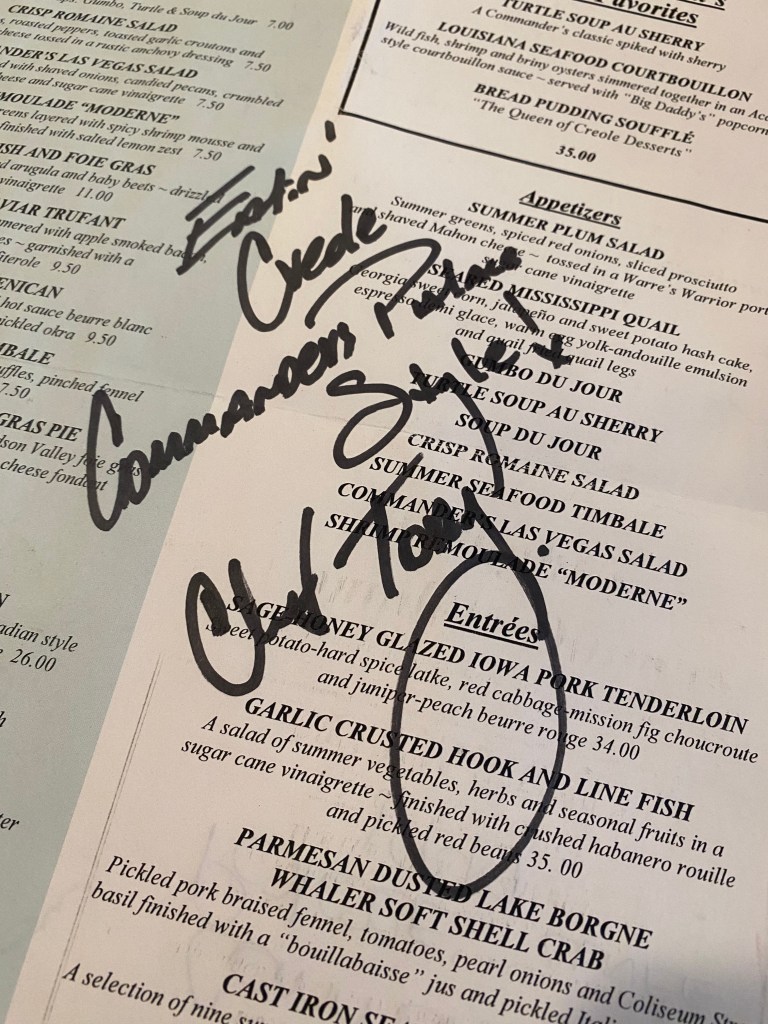 Gumbo, Turtle & Soup du Jour 7.00
CRISP ROMAINE SALAD
roasted peppers, toasted garlic croutons and
cheese tossed in a rustic anchovy dressing 7.50
NDER'S LAS VEGAS SALAD
d with shaved onions, candied pecans, crumbled
cheese and sugar cane vinaigrette 7.50
MOULADE "MODERNE"
greens layered with spicy shrimp mousse and
finished with salted lemon zest 7.50
ISH AND FOIE GRAS
d arugula and baby beets ~ drizzled
vinaigrette 11.00
VIAR TRUFANT
mmered with apple smoked bacon,
es ~ garnished with a
fiterole 9.50
ENICAN
hot sauce beurre blanc
pickled okra 9.50
MBALE
uffles, pinched fennel
7.50
GRAS PIE
dson Valley foie gras
cheese fondant
N
adian style
26.00
h
ter
Favorites
TURTLE SOUP AU SHERRY
A Commander's classic spiked with sherry
LOUISIANA SEAFOOD COURTBOUILLON
Wild fish, shrimp and briny oysters simmered together in an Aca
style courtbouillon sauce ~ served with "Big Daddy's" popcorn
BREAD PUDDING SOUFFLÉ
"The Queen of Creole Desserts"
35.00
Appetizers
SUMMER PLUM SALAD
Summer greens, spiced red onions, sliced prosciutto
and shaved Mahon cheese ~ tossed in a Warre's Warrior port
sugar cane vinaigrette
SEARED MISSISSIPPI QUAIL
Georgia sweet corn, jalapeño and sweet potato hash cake,
espresso demi glace, warm egg yolk-andouille emulsion
and quail fried quail legs
GUMBO DU JOUR
TURTLE SOUP AU SHERRY
SOUP DU JOUR
CRISP ROMAINE SALAD
SUMMER SEAFOOD TIMBALE
COMMANDER'S LAS VEGAS SALAD
SHRIMP REMOULADE "MODERNE"
Eatin'
Creole
Commanders Palace
Style!
Chef Tory
Entrées
SAGE-HONEY GLAZED IOWA PORK TENDERLOIN
Sweet potato-hard spice latke, red cabbage-mission fig choucroute
and juniper-peach beurre rouge 34.00
GARLIC CRUSTED HOOK AND LINE FISH
A salad of summer vegetables, herbs and seasonal fruits in a
sugar cane vinaigrette ~ finished with crushed habanero rouille
and pickled red beans 35. 00
PARMESAN DUSTED LAKE BORGNE
WHALER SOFT SHELL CRAB
Pickled pork braised fennel, tomatoes, pearl onions and Coliseum Str
basil finished with a "bouillabaisse" jus and pickled Itali
CAST IRON SEA
A selection of nine sum